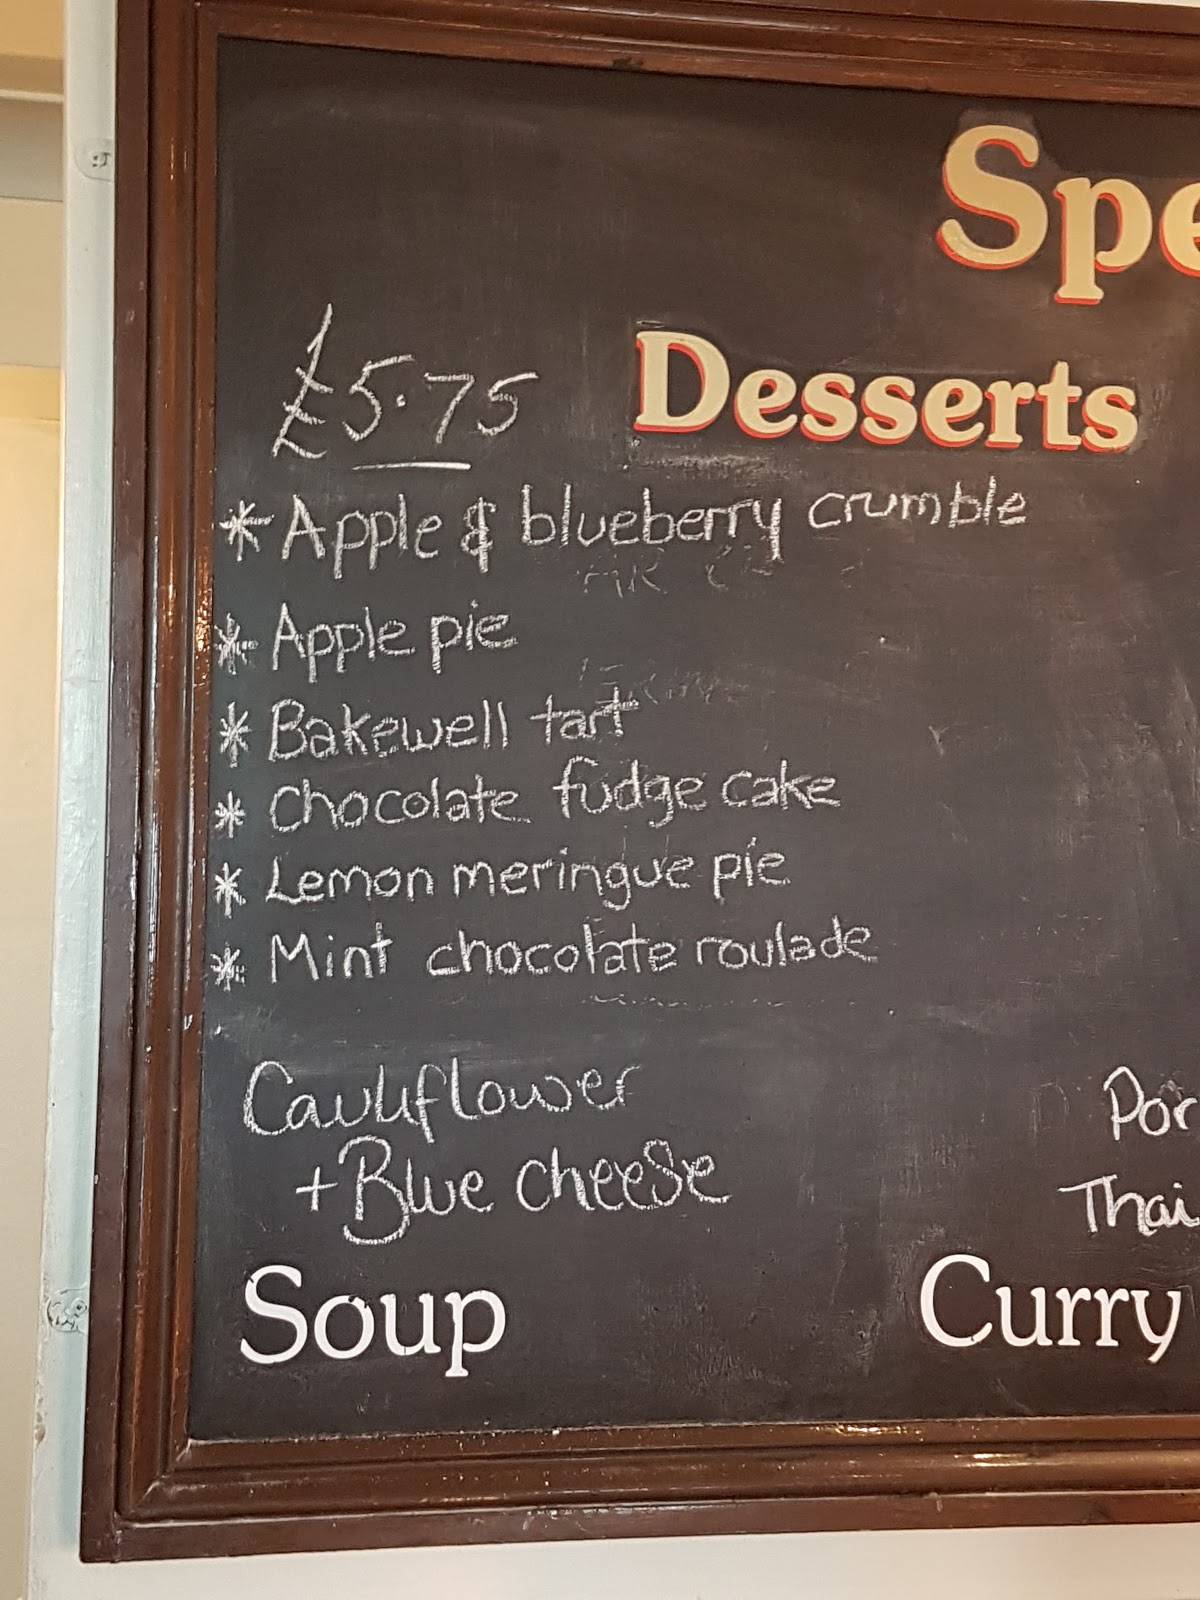 £5.75
Desserts
* Apple & blueberry crumble
* Apple pie
* Bakewell tart
* Chocolate fudge cake
* Lemon meringue pie
* Mint chocolate roulade
Cauliflower
+ Blue cheese
Soup
Thai
Curry